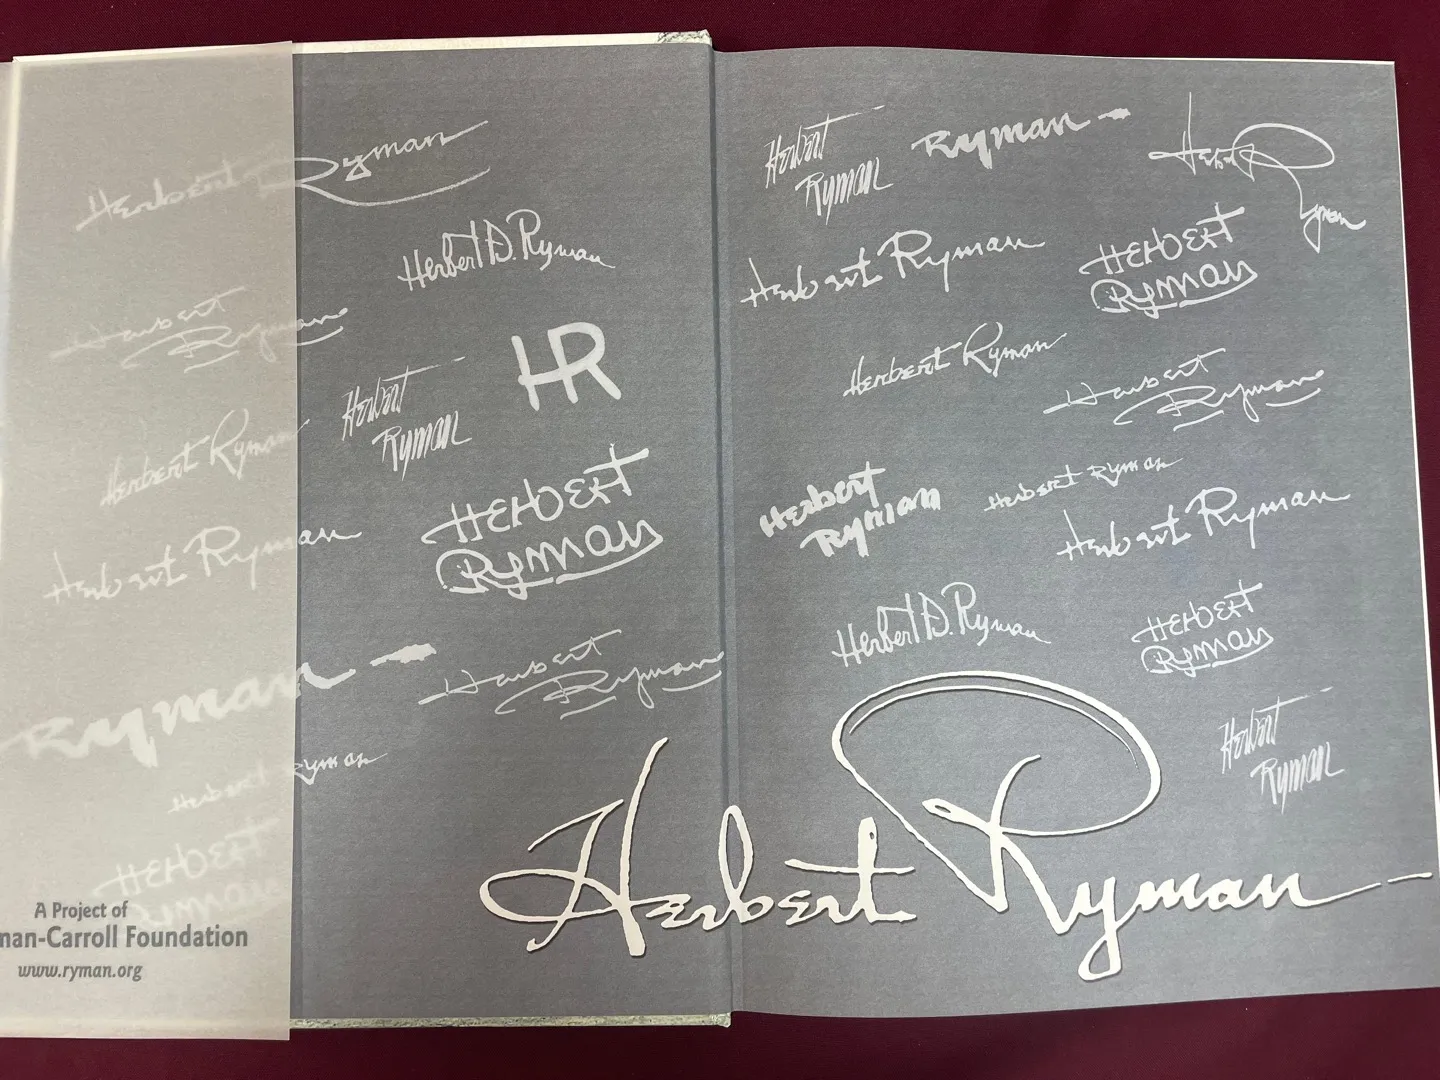 Herbert Ryman
Herbert D. Ryman
Herbert
Ryman
HR
Herbert
Ryman
Herbert Ryman
Herbert
Ryman
Herbert Ryman
Ryman
Herbert
Ryman
Herbert Ryman
Herbert
Ryman
A Project of
man-Carroll Foundation
www.ryman.org
Herbert
Ryman
Ryman
Herbert
Ryman
Herbert Ryman
Herbert
Ryman
Herbert Ryman
Herbert
Ryman
Herbert
Ryman
Herbert Ryman
Herbert Ryman
Herbert D. Ryman
Herbert
Ryman
Herbert
Ryman
Herbert Ryman